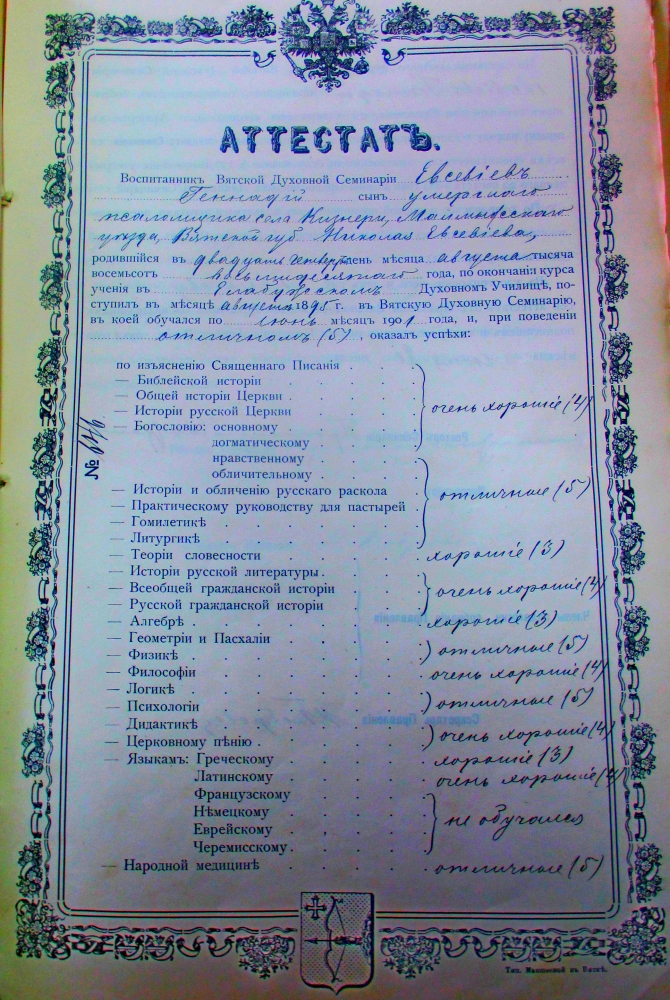 АТТЕСТАТЪ.
Воспитанникъ Вятской Духовной Семинаріи Евсевіевъ
Геннадій сынъ умершаго
псаломщика села Кизнери, Малмыжскаго
уѣзда, Вятской губ Николая Евсевіева,
родившійся въ двадцать четверт день мѣсяца августа тысяча
восемьсотъ восьмидесятаго года, по окончаніи курса
ученія въ Елабужскомъ Духовномъ Училищѣ, по-
ступилъ въ мѣсяцѣ августѣ 1895 г. въ Вятскую Духовную Семинарію,
въ коей обучался по іюнь мѣсяцъ 1901 года, и, при поведеніи
отличномъ (5), оказалъ успѣхи:
по изъясненію Священнаго Писанія
— Библейской исторіи
— Общей исторіи Церкви
— Исторіи русской Церкви очень хорошіе (4)
— Богословію: основному
догматическому
нравственному
обличительному
— Исторіи и обличенію русскаго раскола отличные (5)
— Практическому руководству для пастырей
— Гомилетикѣ
— Литургикѣ
— Теоріи словесности хорошіе (3)
— Исторіи русской литературы
— Всеобщей гражданской исторіи очень хорошіе (4)
— Русской гражданской исторіи
— Алгебрѣ хорошіе (3)
— Геометріи и Пасхаліи
— Физикѣ отличные (5)
— Философіи очень хорошіе (4)
— Логикѣ
— Психологіи отличные (5)
— Дидактикѣ
— Церковному пѣнію очень хорошіе (4)
— Языкамъ: Греческому хорошіе (3)
Латинскому очень хорошіе (4)
Французскому
Нѣмецкому не обучался
Еврейскому
Черемисскому
— Народной медицинѣ отличные (5)
№ 646
Тип. Маишеевой въ Вяткѣ.